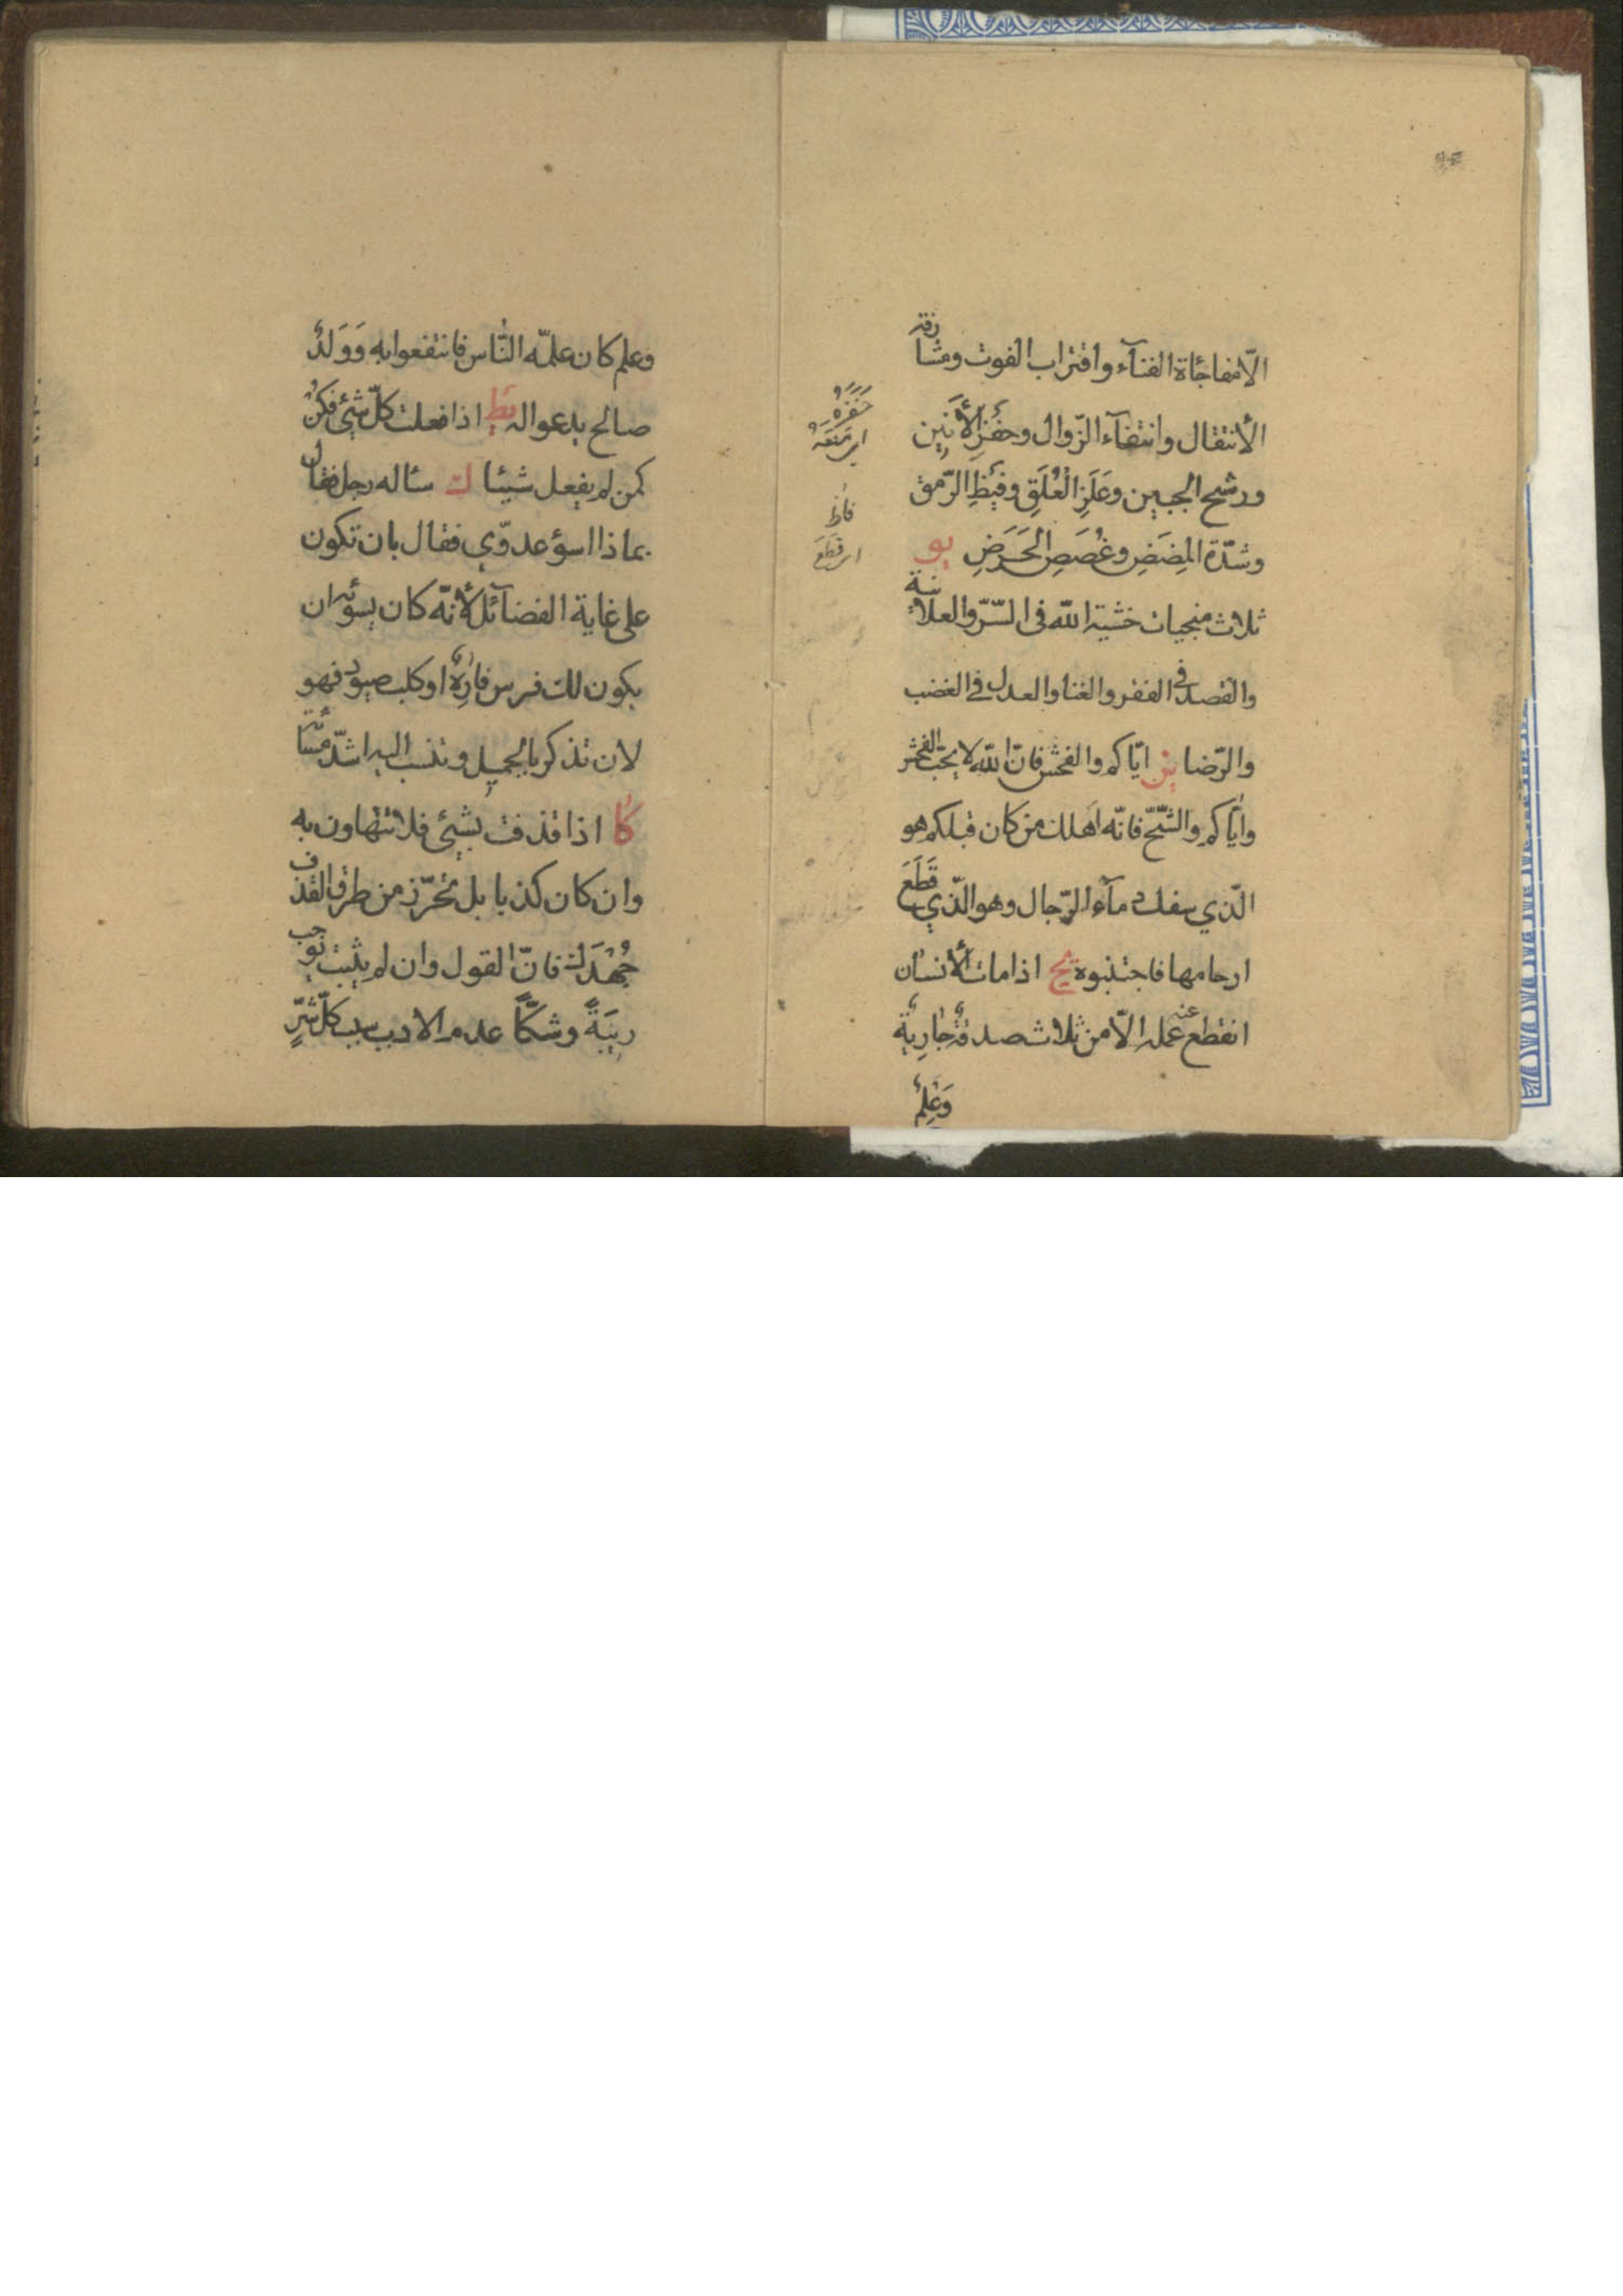 الّا مفاجاة الفنآء واقتراب الفوت ومشارفة
الأنتقال وانتفآء الزّوال وحفز الأنين
ورشح الجبين وعَلَزِ العَلَقِ وفيظِ الرّمق
وشدّة المِضَضِ وغُصَصِ الحَرَضِ يو
ثلاث منجيات خشية الله فى السّرّ والعلانية
والقصد فى الفقر والغنا والعدل فى الغضب
والرّضا يز ايّاكم والفحش فانّ الله لا يحبّ الفحش
وايّاكم والشّحّ فانّه اهلك من كان قبلكم هو
الّذي سفك دمآء الرّجال وهو الّذي قَطَعَ
ارحامها فاجتنبوه يح اذا مات الأنسان
انقطع عنه عمله الّا من ثلاث صدقةٌ جاريةٌ
وَعِلمٌ
حَفَزَهُ
اى دَفَعَهُ
فاظ
اى
وعلم كان علمّه النّاس فانتفعوا به وَوَلَدٌ
صالح يدعو اله يط اذا فعلت كلّ شيئ فكن
كمن لم يفعل شيئا ك سئاله رجل فقال
بماذا اسؤ عدوّي فقال بان تكون
على غاية الفضآئل لأنّه كان يسوئه ان
يكون لك فرس فارِهٌ او كلب صيود فهو
لان تذكر بالجميل وتنسب اليه اشدّ مسائة
كا اذا قذفت بشيئ فلا تتهاون به
وان كان كذبا بل تحرّز من طرق القذف
جُهْدَكَ فانّ القول وان لم يثبت يوجب
ريبَةً وشكّاً عدم الادب سبب كلّ شرٍّ